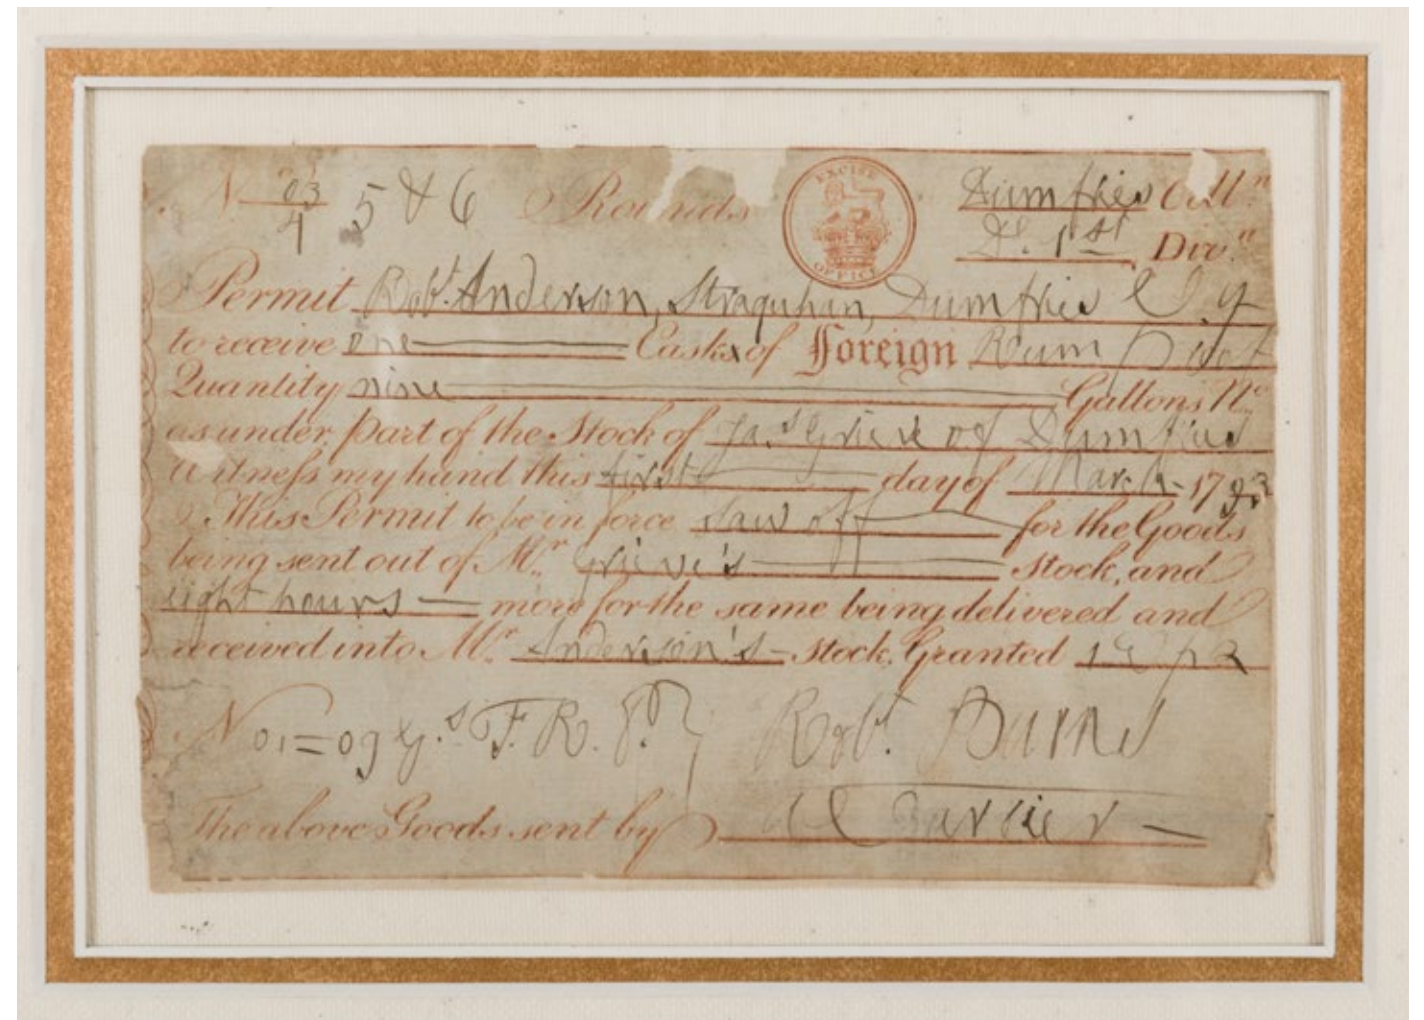 N 03/4 5 & 6 Rounds
EXCISE OFFICE
Dumfries Coll.n
Do. 1st Div.n
Permit Robt. Anderson, Straquhan, Dumfries
to receive one Casks of Foreign Rum
Quantity nine Gallons No.
as under, part of the Stock of Jas. Grieve of Dumfries
Witness my hand this first day of March 1793
This Permit to be in force for the Goods
being sent out of Mr. Grieve's Stock, and
eight hours more for the same being delivered and
received into Mr. Anderson's Stock, Granted
No 01=09 Gs. F. R. Robt. Burns
The above Goods sent by Carrier